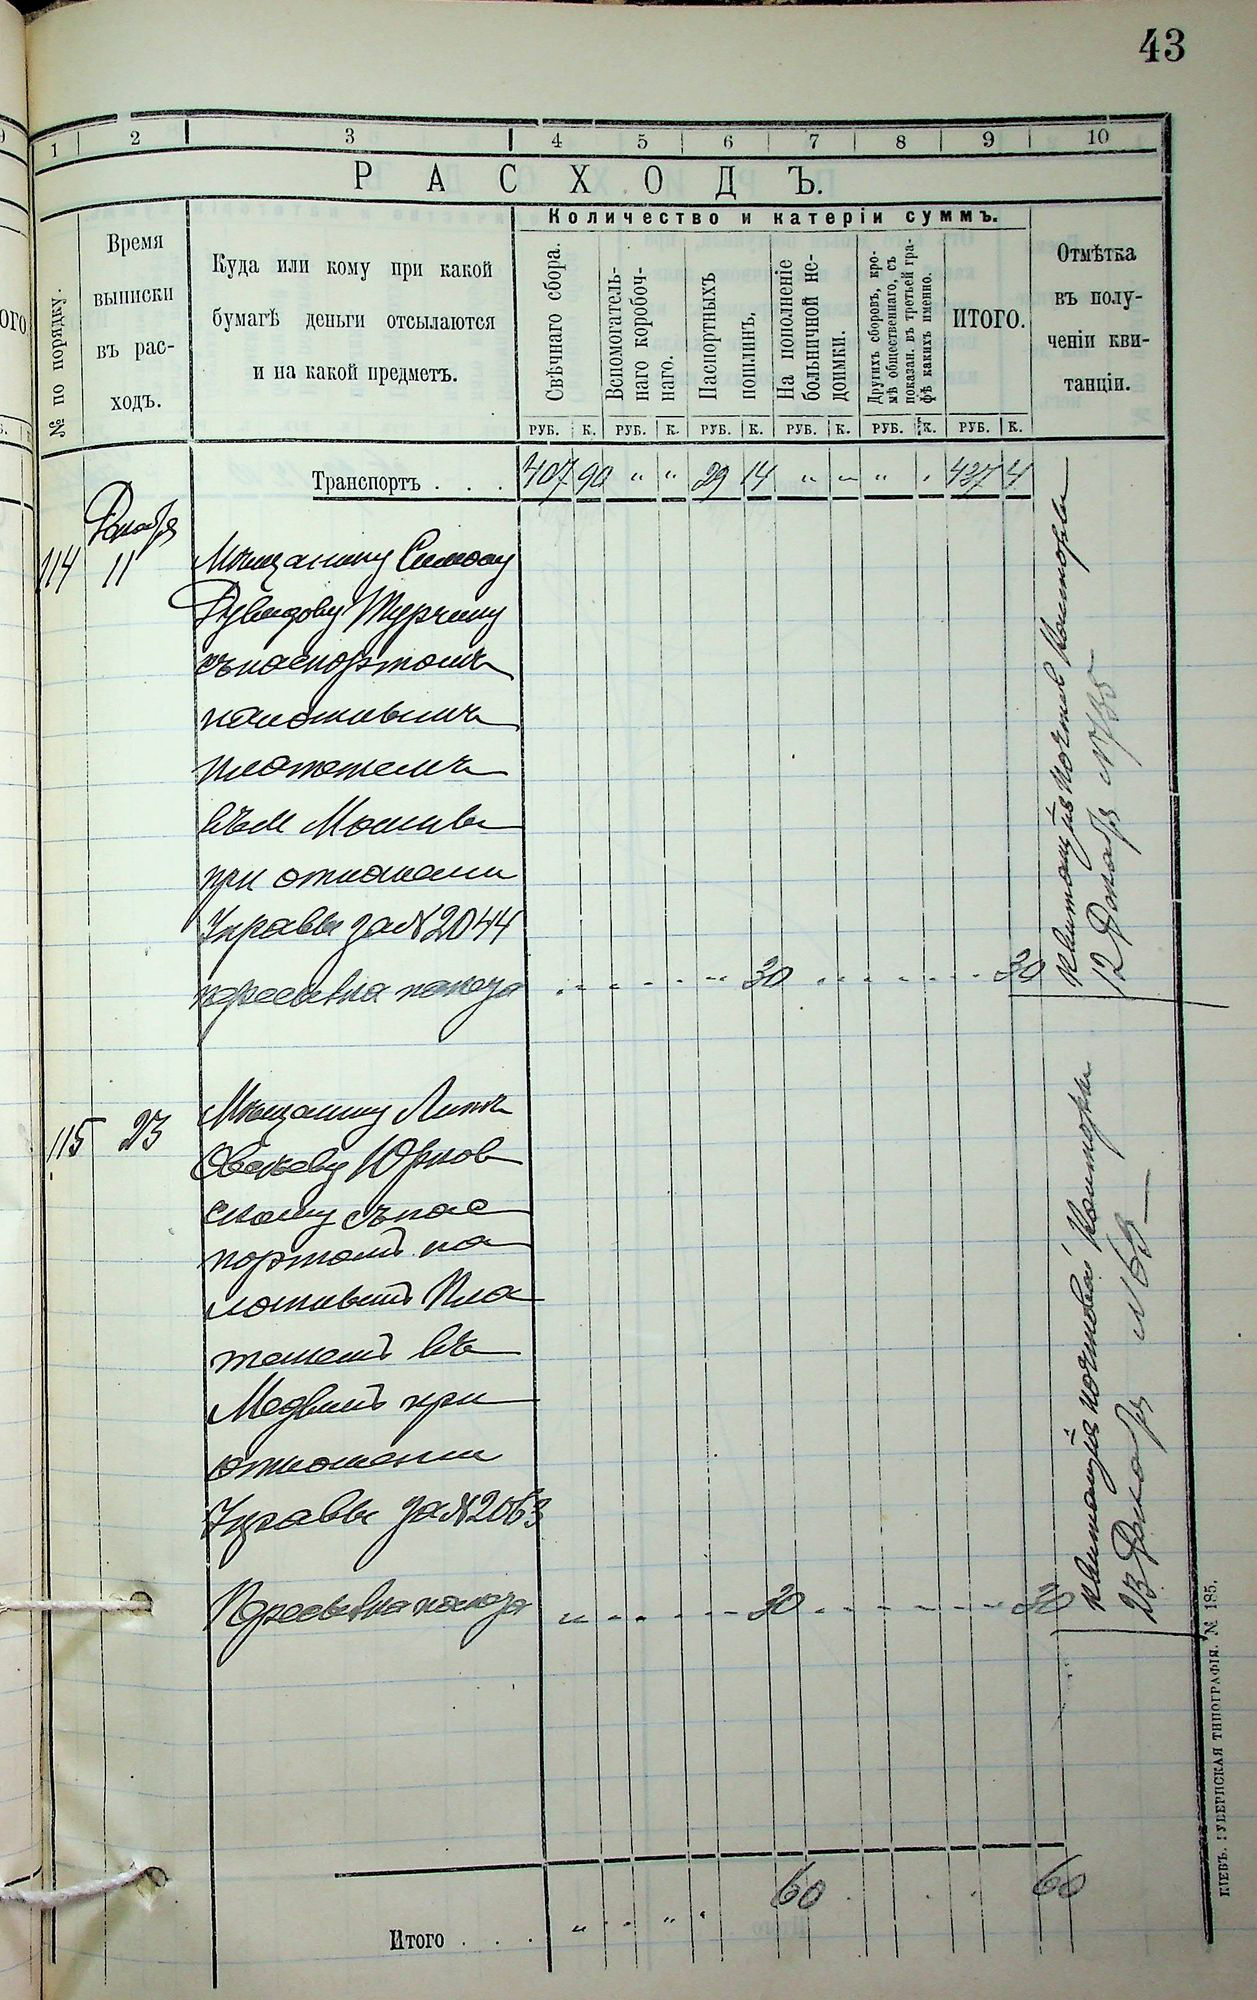 43
1 2 3 4 5 6 7 8 9 10
РАСХОДЪ.
№ по порядку.
Время
выписки
въ рас-
ходъ.
Куда или кому при какой
бумагѣ деньги отсылаются
и на какой предметъ.
Количество и катерiи суммъ.
Свѣчнаго сбора.
Вспомогатель-
наго коробоч-
наго.
Паспортныхъ
пошлинъ.
На пополненіе
больничной не-
доимки.
Другихъ сборовъ, кро-
мѣ общественнаго, съ
показан. въ третьей гра-
фѣ какихъ именно.
ИТОГО.
Отмѣтка
въ полу-
ченіи кви-
танціи.
РУБ. К. РУБ. К. РУБ. К. РУБ. К. РУБ. К. РУБ. К.
Транспортъ . . . 407 90 " " 29 14 " " " " 437 4
Декабря
114 11 Мѣщанину
Турчину
съ паспортомъ
наложеннымъ
платежемъ
въ м
при отношеніи
Управы за № 2044
пересылка назадъ 30 30
Квитанція почтов Конторы
12 Декабря
115 23 Мѣщанину
Юрков
скому съ пас
портомъ на
ложеннымъ пла
тежемъ въ
при
отношеніи
Управы за № 2063
Пересылка назадъ 30 30
Квитанція почтовой Конторы
23 Декабря № 69
Итого . . . . 60 60
КІЕВЪ. ГУБЕРНСКАЯ ТИПОГРАФІЯ. № 185.